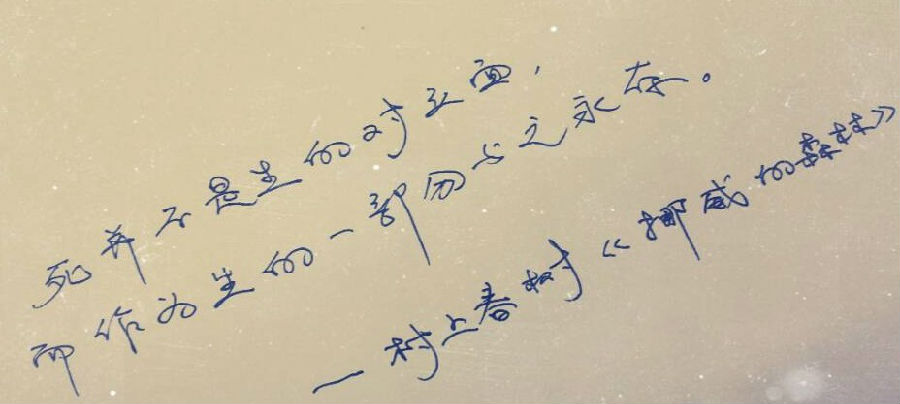 死并不是生的对立面，
而作为生的一部分与之永存。
一村上春树《挪威的森林》